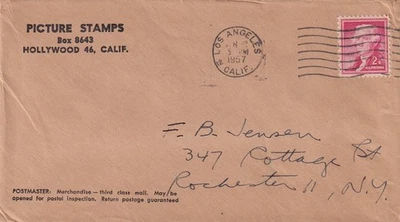 PICTURE STAMPS
Box 8643
HOLLYWOOD 46, CALIF.
LOS ANGELES
PM
1957
CALIF.
2¢
F. B. Jensen
347 Cottage St
Rochester 11, N.Y.
POSTMASTER: Merchandise — third class mail. May be
opened for postal inspection. Return postage guaranteed